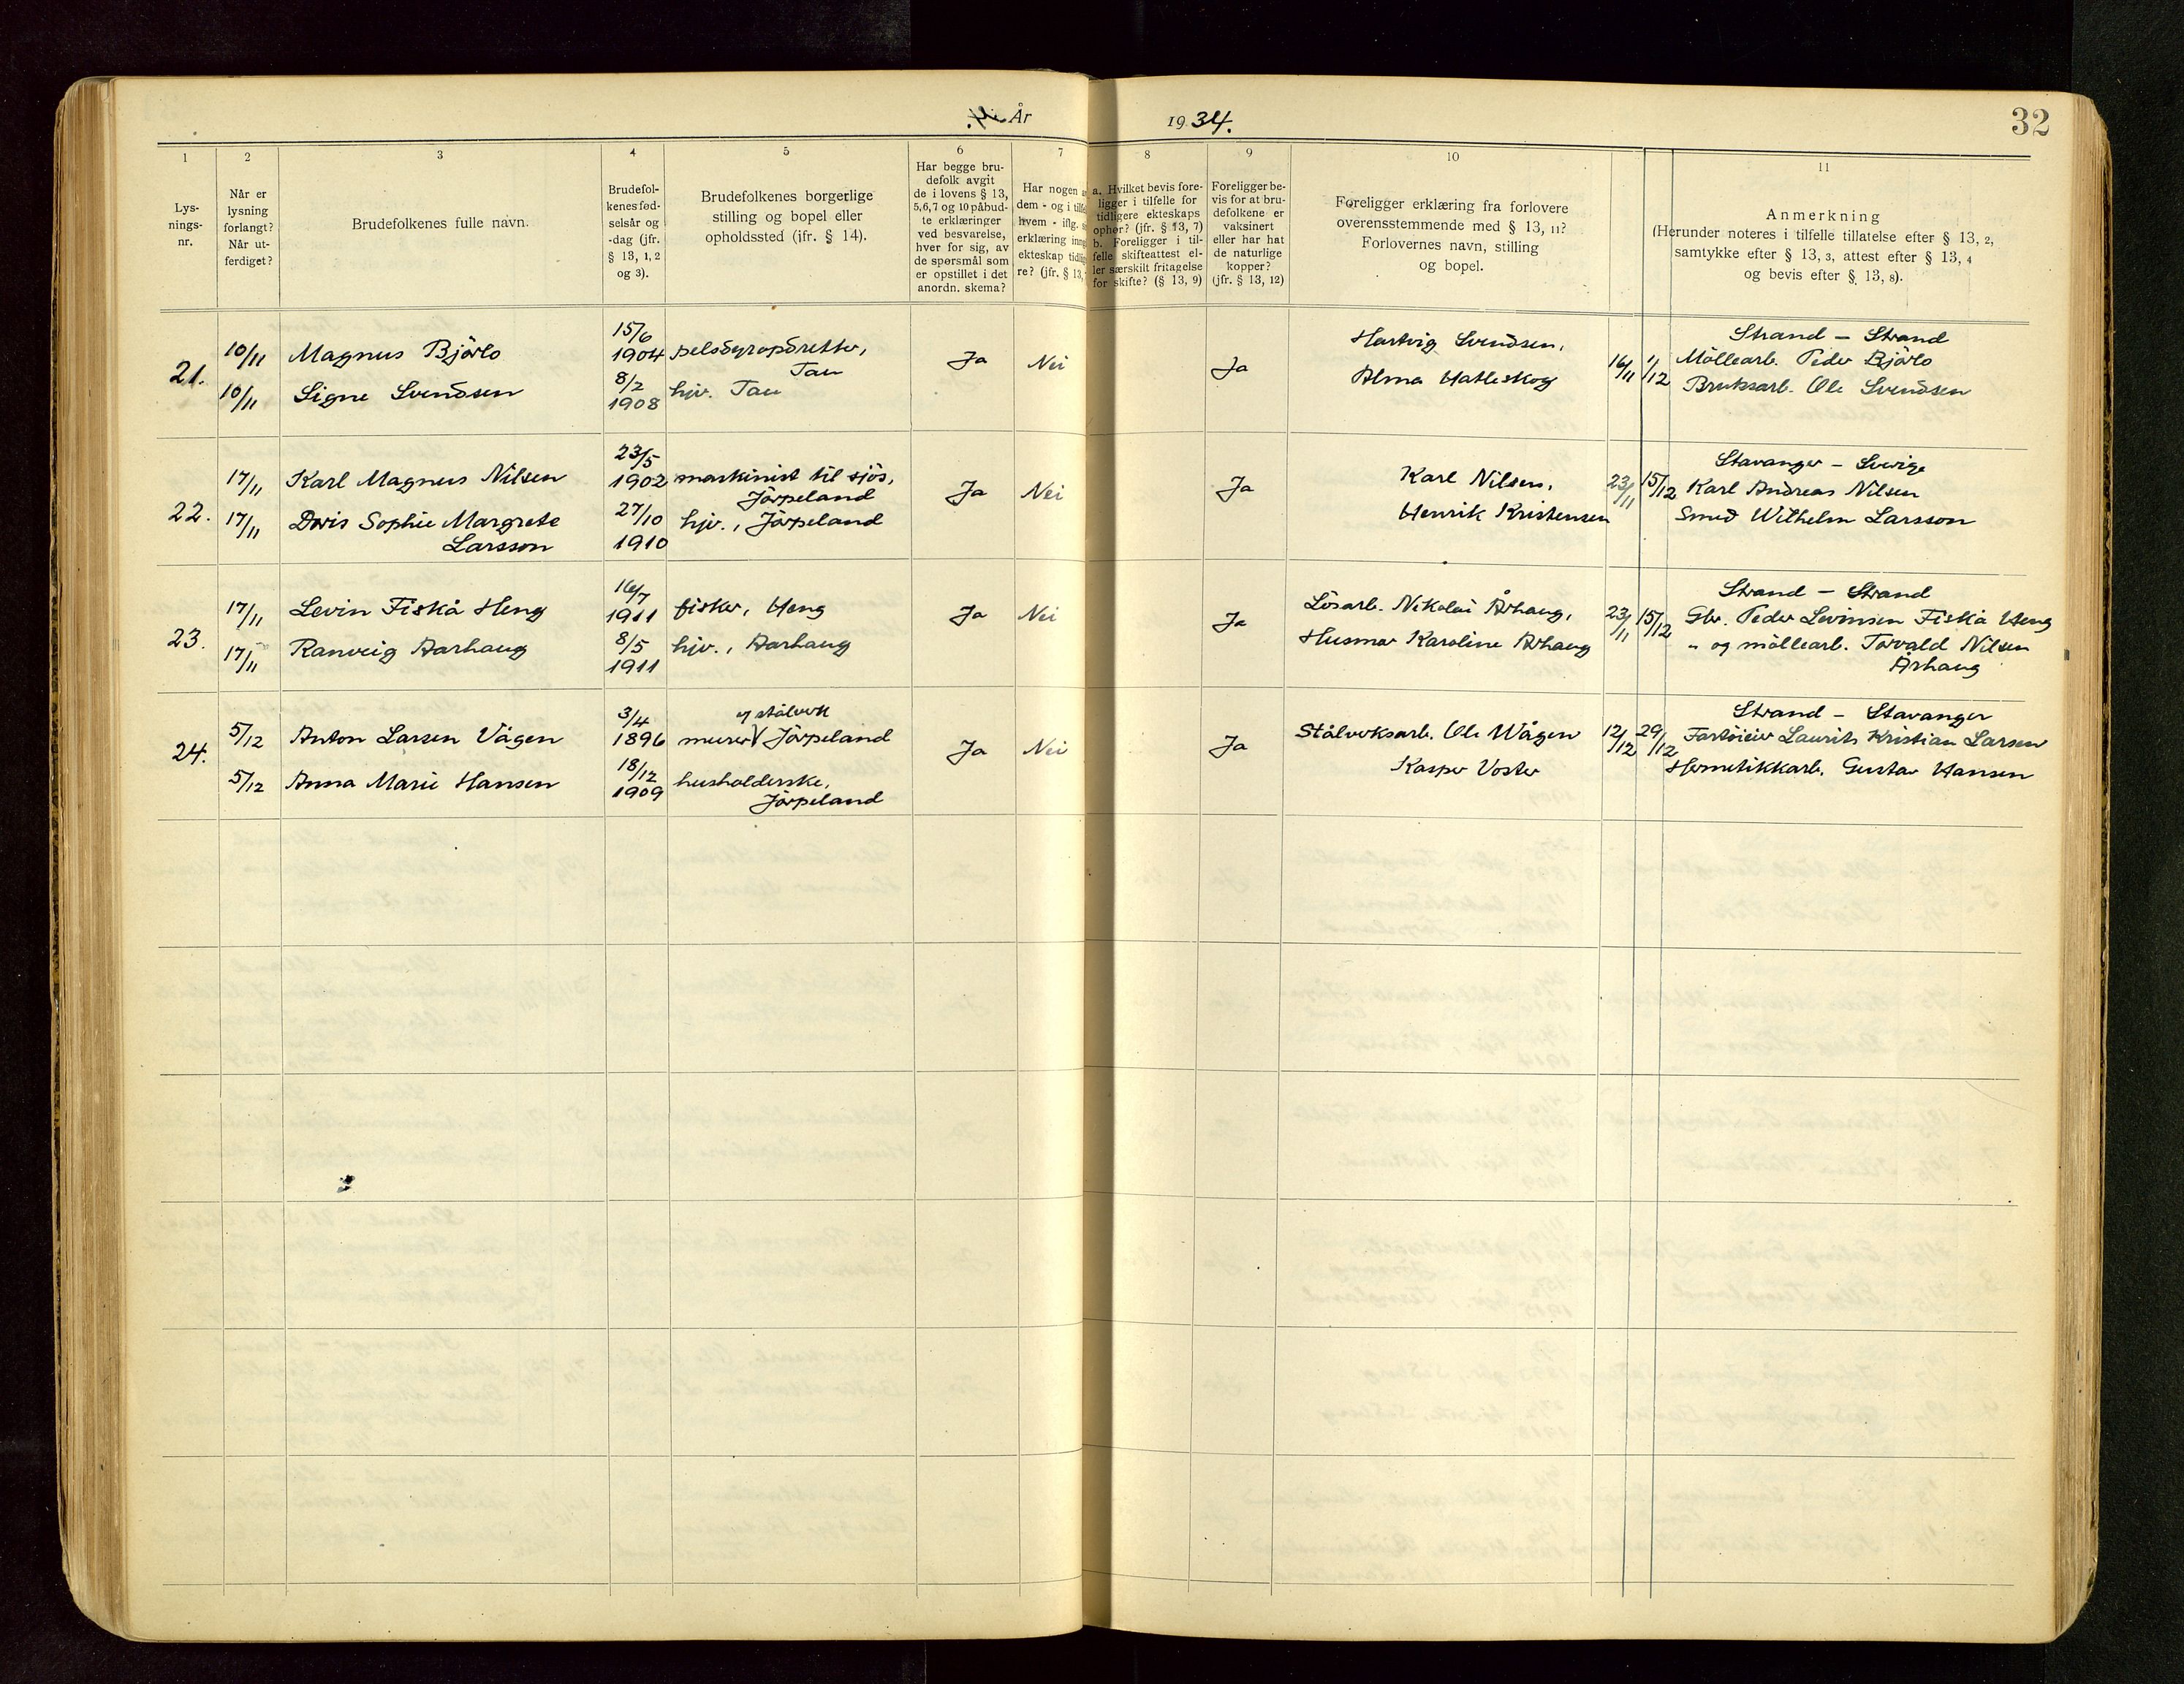 År 1934.
32
1 2 3 4 5 6 7 8 9 10 11
Lys-
nings-
nr.
Når er
lysning
forlangt?
Når ut-
ferdiget?
Brudefolkenes fulle navn.
Brudefol-
kenes fød-
selsår og
-dag (jfr.
§ 13, 1, 2
og 3).
Brudefolkenes borgerlige
stilling og bopel eller
opholdssted (jfr. § 14).
Har begge bru-
defolk avgit
de i lovens § 13,
5, 6, 7 og 10 påbud-
te erklæringer
ved besvarelse,
hver for sig, av
de spørsmål som
er opstillet i det
anordn. skema?
Har nogen a
dem - og i tilfe
hvem - iflg. s
erklæring inng
ekteskap tidlig
re? (jfr. § 13,
a. Hvilket bevis fore-
ligger i tilfelle for
tidligere ekteskaps
ophør? (jfr. § 13, 7)
b. Foreligger i til-
felle skifteattest el-
ler særskilt fritagelse
for skifte? (§ 13, 9)
Foreligger be-
vis for at bru-
defolkene er
vaksinert
eller har hat
de naturlige
kopper?
(jfr. § 13, 12)
Foreligger erklæring fra forlovere
overensstemmende med § 13, 11?
Forlovernes navn, stilling
og bopel.
Anmerkning
(Herunder noteres i tilfelle tillatelse efter § 13, 2,
samtykke efter § 13, 3, attest efter § 13, 4
og bevis efter § 13, 8).
21.
10/11 Magnus Björlo
15/6
1904
pelsdyropdretter,
Tau
10/11 Signe Svendsen
8/2
1908
hjv. Tau
Ja Nei Ja
Hartvig Svendsen,
Alma Hatleskog
16/11 1/12
Strand – Strand
Möllearb. Peder Björlo
Bruksarb. Ole Svendsen
22.
17/11 Karl Magnus Nilsen
23/5
1902
maskinist til sjös,
Jörpeland
17/11 Doris Sophie Margrete
Larsson
27/10
1910
hjv., Jörpeland
Ja Nei Ja
Karl Nilsen,
Henrik Kristensen
23/11 15/12
Stavanger – Sverige
Karl Andreas Nilsen
Smed Wilhelm Larsson
23.
17/11 Levin Fiskå Heng
16/7
1911
fisker, Heng
17/11 Ranveig Aarhaug
8/5
1911
hjv., Aarhaug
Ja Nei Ja
Lösarb. Nikolai Århaug,
Husmor Karoline Århaug
23/11 15/12
Strand – Strand
Gbr. Peder Levinsen Fiskå Heng
" og möllearb. Torvald Nilsen
Århaug
24.
5/12 Anton Larsen Vågen
3/4
1896
v/ stålverk
murer Jörpeland
5/12 Anna Marie Hansen
18/12
1909
husholderske,
Jörpeland
Ja Nei Ja
Stålverksarb. Ole Wågen
Kasper Voster
12/12 29/12
Strand – Stavanger
Fartöieier Laurits Kristian Larsen
Hermetikkarb. Gustav Hansen